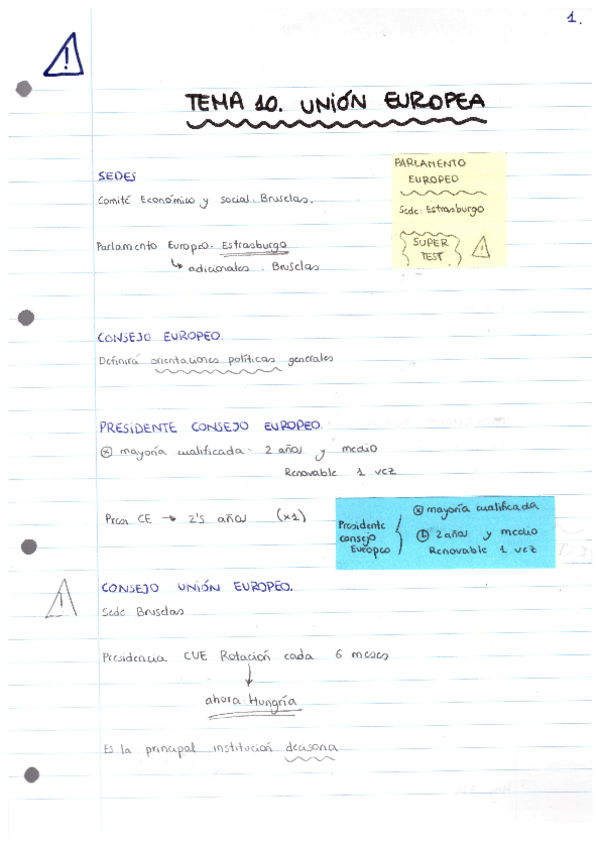 1.
TEMA 10. UNIÓN EUROPEA
SEDES
Comité Económico y social. Bruselas.
Parlamento Europeo. Estrasburgo
↳ adicionales. Bruselas
PARLAMENTO
EUROPEO
Sede: Estrasburgo
SUPER
TEST.
CONSEJO EUROPEO.
Definirá orientaciones políticas generales
PRESIDENTE CONSEJO EUROPEO.
mayoría cualificada. 2 años y medio
Renovable 1 vez
Presi CE → 2'5 años (x1)
Presidente
consejo
Europeo
mayoría cualificada
2 años y medio
Renovable 1 vez
CONSEJO UNIÓN EUROPEO.
Sede Bruselas
Presidencia CUE Rotación cada 6 meses
ahora Hungría
Es la principal institución decisoria